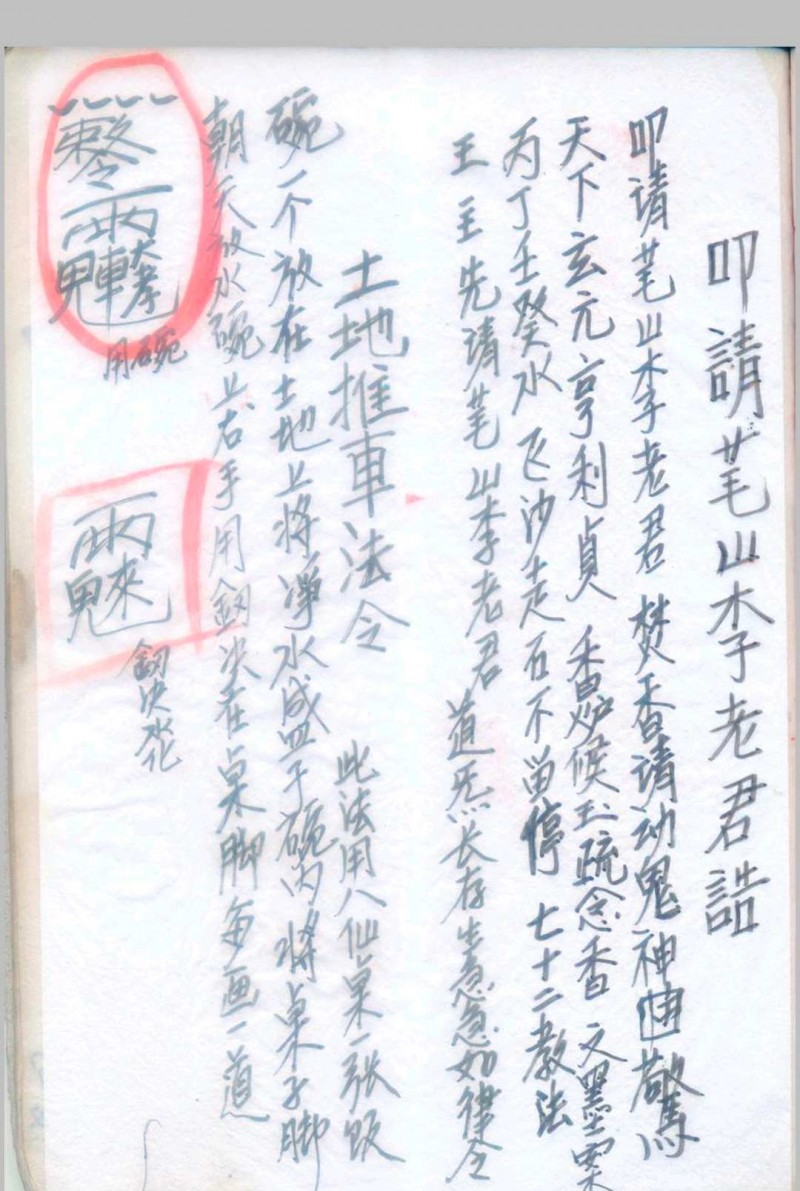 叩請茅山李老君誥
叩请茅山李老君 焚香请动鬼神驚
天下玄元亨利貞 香炉候玉疏念香 文墨案
丙丁壬癸水 飞沙走石不留停 七十二教法
王主先請茅山李老君 道炁长存 生急急如律令
土地推車法令 此法用八仙桌一张 饭
碗一个放在土地上将淨水成四于碗内 将桌子脚
朝天放水碗上右手用劍决在桌脚每画一道
用碗
劍决水化